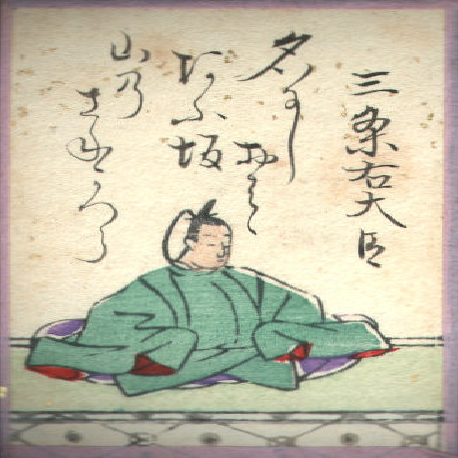 三条右大臣
名にし
おはゞ
あふ坂
山乃
さねかつら